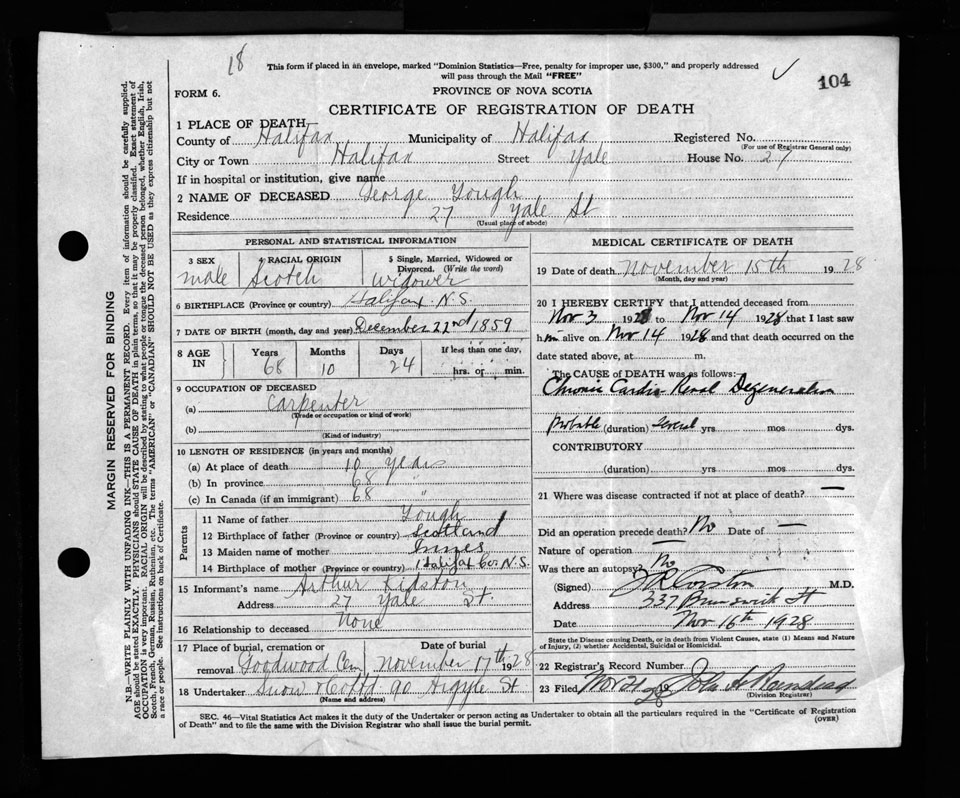 18
This form if placed in an envelope, marked "Dominion Statistics—Free, penalty for improper use, $300," and properly addressed
will pass through the Mail "FREE"
✓
104
FORM 6.
PROVINCE OF NOVA SCOTIA
CERTIFICATE OF REGISTRATION OF DEATH
1 PLACE OF DEATH
County of Halifax Municipality of Halifax Registered No.
(For use of Registrar General only)
City or Town Halifax Street Yale House No. 27
If in hospital or institution, give name
2 NAME OF DECEASED George Yough
Residence 27 Yale St
(Usual place of abode)
PERSONAL AND STATISTICAL INFORMATION
3 SEX male
4 RACIAL ORIGIN Scotch
5 Single, Married, Widowed or Divorced. (Write the word) Widower
6 BIRTHPLACE (Province or country) Halifax N.S.
7 DATE OF BIRTH (month, day and year) December 22nd 1859
8 AGE IN
Years Months Days If less than one day,
68 10 24 hrs. or min.
9 OCCUPATION OF DECEASED
(a) Carpenter
(Trade or occupation or kind of work)
(b)
(Kind of industry)
10 LENGTH OF RESIDENCE (in years and months)
(a) At place of death 10 years
(b) In province 68 "
(c) In Canada (if an immigrant) 68 "
Parents
11 Name of father Yough
12 Birthplace of father (Province or country) Scotland
13 Maiden name of mother Innes
14 Birthplace of mother (Province or country) Halifax Co. N.S.
15 Informant's name Arthur Kidston
Address 27 Yale St.
16 Relationship to deceased None
17 Place of burial, cremation or Date of burial
removal Goodwood Cem November 17th 1928
18 Undertaker Snow & Co Ltd 90 Argyle St
(Name and address)
MEDICAL CERTIFICATE OF DEATH
19 Date of death November 15th 1928
(Month, day and year)
20 I HEREBY CERTIFY that I attended deceased from
Nov 3 1928 to Nov 14 1928 that I last saw
him alive on Nov 14 1928 and that death occurred on the
date stated above, at m.
The CAUSE OF DEATH was as follows:
Chronic Cardio Renal Degeneration
Probable (duration) Several yrs mos dys.
CONTRIBUTORY
(duration) yrs mos dys.
21 Where was disease contracted if not at place of death? —
Did an operation precede death? No Date of —
Nature of operation —
Was there an autopsy? No
(Signed) M.D.
Address 337 Brunswick St
Date Nov 16th 1928
State the Disease causing Death, or in death from Violent Causes, state (1) Means and Nature
of Injury, (2) whether Accidental, Suicidal or Homicidal.
22 Registrar's Record Number
23 Filed Nov 21 28 John A
(Division Registrar)
SEC. 46—Vital Statistics Act makes it the duty of the Undertaker or person acting as Undertaker to obtain all the particulars required in the "Certificate of Registration
of Death" and to file the same with the Division Registrar who shall issue the burial permit.
(OVER)
MARGIN RESERVED FOR BINDING
N.B.—WRITE PLAINLY WITH UNFADING INK—THIS IS A PERMANENT RECORD. Every item of information should be carefully supplied.
AGE should be stated EXACTLY. PHYSICIANS should STATE CAUSE OF DEATH in plain terms, so that it may be properly classified. Exact statement of
OCCUPATION is very important. RACIAL ORIGIN will be described by stating to what people or tongue the deceased person belonged, whether English, Irish,
Scotch, French, German, Russian, Ruthenian, etc. The terms "AMERICAN" or "CANADIAN" SHOULD NOT BE USED as they express citizenship but not
a race or people. See instructions on back of Certificate.